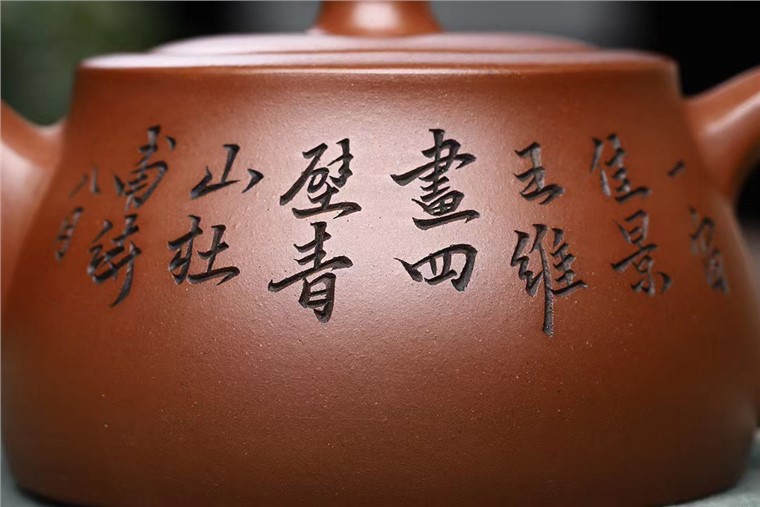 一窗
佳景
王維
畫四
壁青
山杜
甫詩
八月